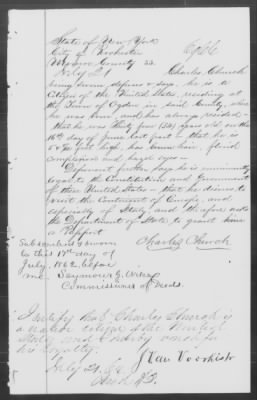 State of New York
City of Rochester
Monroe County ss.
July 21
Charles Church
being sworn, deposes & says, he is a
Citizen of the United States, residing at
the Town of Ogden in said County, where
he was born, and has always resided -
that he was thirty four years old on the
day of June last past - that he is
5 feet high, has brown hair, florid
complexion and hazel eyes -
Deponent further says he is eminently
loyal to the Constitution and Government
of these United States - that he desires to
visit the Continent of Europe, and
especially of Italy and therefore asks
the Department of State to grant him
a Passport
Charles Church
Subscribed & sworn
to this 17th day of
July, 1862, before
me Seymour G. Wilcox
Commissioner of Deeds.
I certify that Charles Church is
a native citizen of the United
States and I hereby vouch for
his loyalty.
J Van Voorhis
July 21. 62